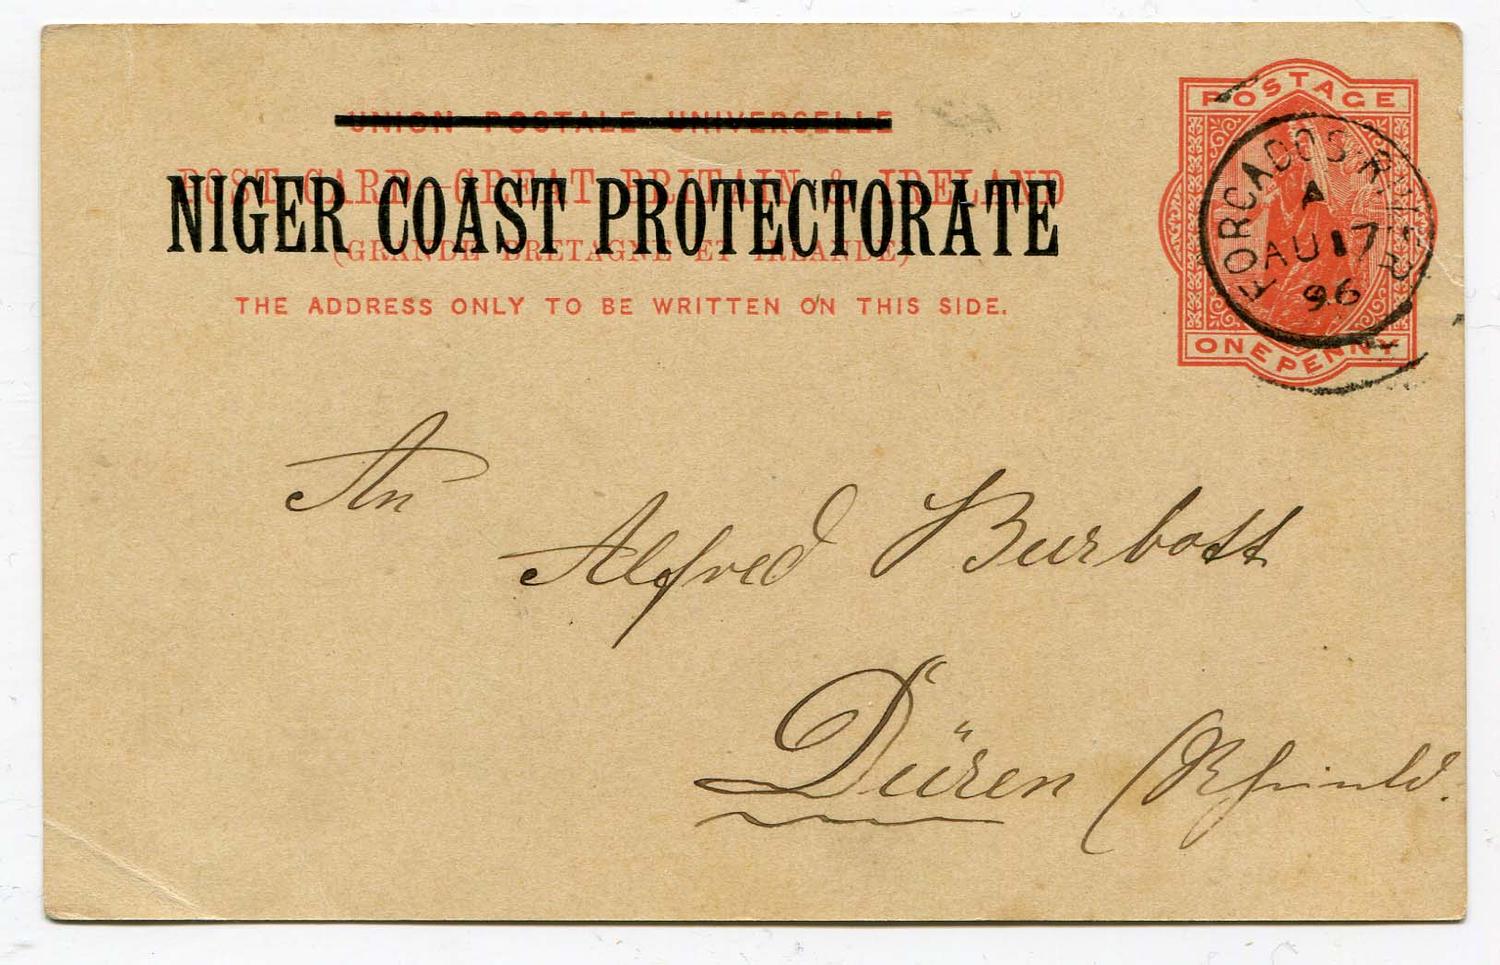 UNION POSTALE UNIVERSELLE
POST CARD - GREAT BRITAIN & IRELAND
NIGER COAST PROTECTORATE
(GRANDE BRETAGNE ET IRLANDE)
THE ADDRESS ONLY TO BE WRITTEN ON THIS SIDE.
POSTAGE
FORCADOS RIVER
A
AU 17
96
ONE PENNY
An
Alfred Burbott
Düren (Rheinld.